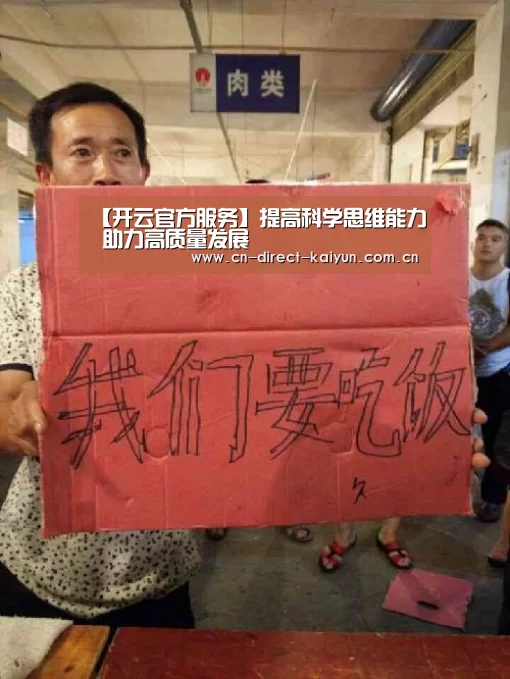 肉类
【开云官方服务】提高科学思维能力
助力高质量发展
www.cn-direct-kaiyun.com.cn
我们要吃饭